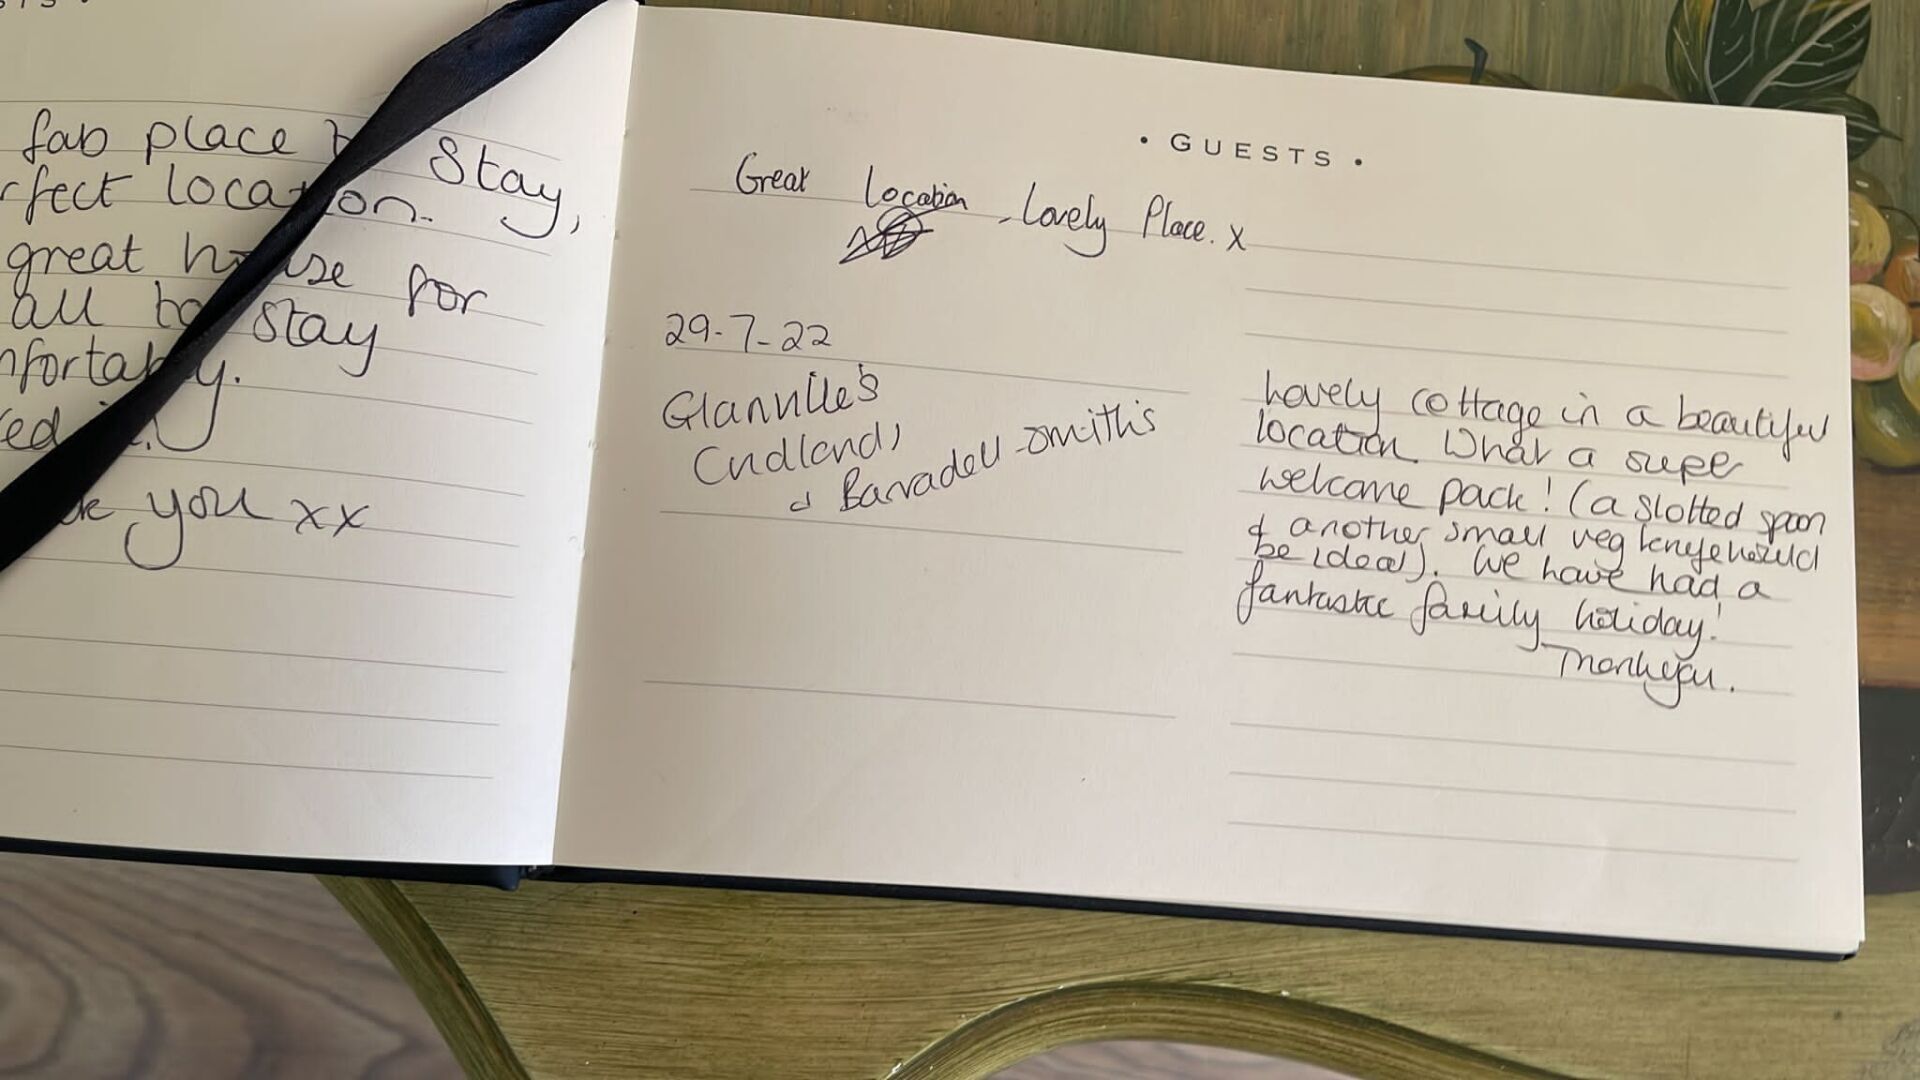 fab place to stay,
rfect location.
great house for
all to stay
nfortably.
ed it.
you xx
• GUESTS •
Great Location, Lovely Place. x
29-7-22
Glanville's
Cudlands
& Barradell-Smith's
Lovely cottage in a beautiful
location. What a super
welcome pack! (a slotted spoon
& another small veg knife would
be ideal). We have had a
fantastic family holiday!
Thankyou.